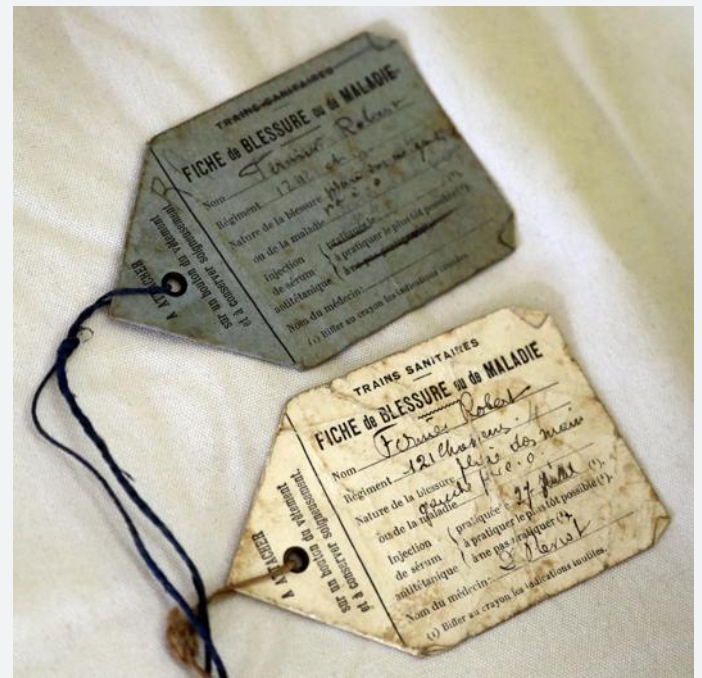 TRAINS SANITAIRES
FICHE de BLESSURE ou de MALADIE
Nom Robert
Régiment
Nature de la blessure plaie
ou de la maladie
Injection
de sérum
antitétanique
pratiquée le
à pratiquer le plus tôt possible (1).
à ne pas pratiquer
Nom du médecin:
(1) Biffer au crayon les indications inutiles.
A ATTACHER
sur un bouton du vêtement
et à conserver soigneusement.
TRAINS SANITAIRES
FICHE de BLESSURE ou de MALADIE
Nom Robert
Régiment 121 Chasseurs
Nature de la blessure plaie dos main
ou de la maladie gauche
Injection
de sérum
antitétanique
pratiquée 27 juillet (1).
à pratiquer le plus tôt possible (1).
à ne pas pratiquer (1).
Nom du médecin:
(1) Biffer au crayon les indications inutiles.
A ATTACHER
sur un bouton du vêtement
et à conserver soigneusement.